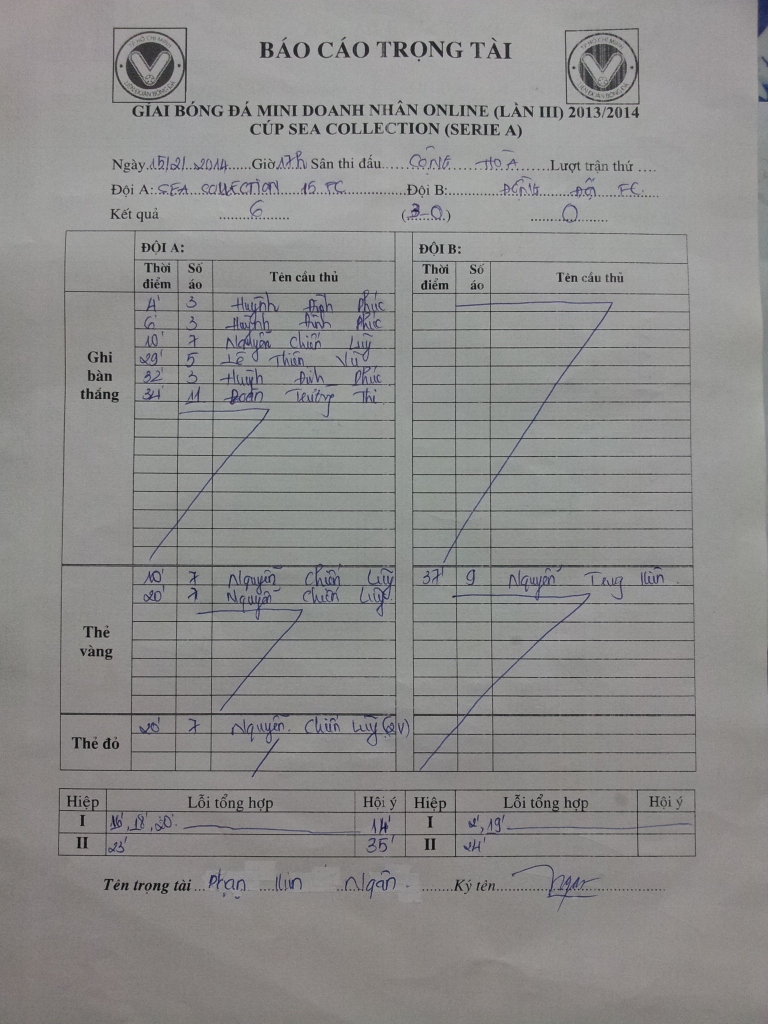 TP HỒ CHÍ MINH
LIÊN ĐOÀN BÓNG ĐÁ
BÁO CÁO TRỌNG TÀI
GIẢI BÓNG ĐÁ MINI DOANH NHÂN ONLINE (LẦN III) 2013/2014
CÚP SEA COLLECTION (SERIE A)
Ngày 15/2/ 2014 Giờ 17h Sân thi đấu CỘNG HÒA Lượt trận thứ ....
Đội A: SEA COLLECTION 15 FC Đội B: ĐỒNG ĐỘI FC
Kết quả 6 (3-0) 0
ĐỘI A: ĐỘI B:
Thời điểm Số áo Tên cầu thủ Thời điểm Số áo Tên cầu thủ
Ghi bàn thắng
4' 3 Huỳnh Đình Phúc
6' 3 Huỳnh Đình Phúc
10' 7 Nguyễn Chiến Luỹ
29' 5 Lê Thiên Vũ
32' 3 Huỳnh Đình Phúc
34' 11 Đoàn Trường Thi
Thẻ vàng
10' 7 Nguyễn Chiến Luỹ 37' 9 Nguyễn
20' 7 Nguyễn Chiến Luỹ
Thẻ đỏ
20' 7 Nguyễn Chiến Luỹ (2V)
Hiệp Lỗi tổng hợp Hội ý Hiệp Lỗi tổng hợp Hội ý
I 16', 18', 20' 14' I 2', 19'
II 23' 35' II 24'
Tên trọng tài Phạn Kim Ngân Ký tên Ngân